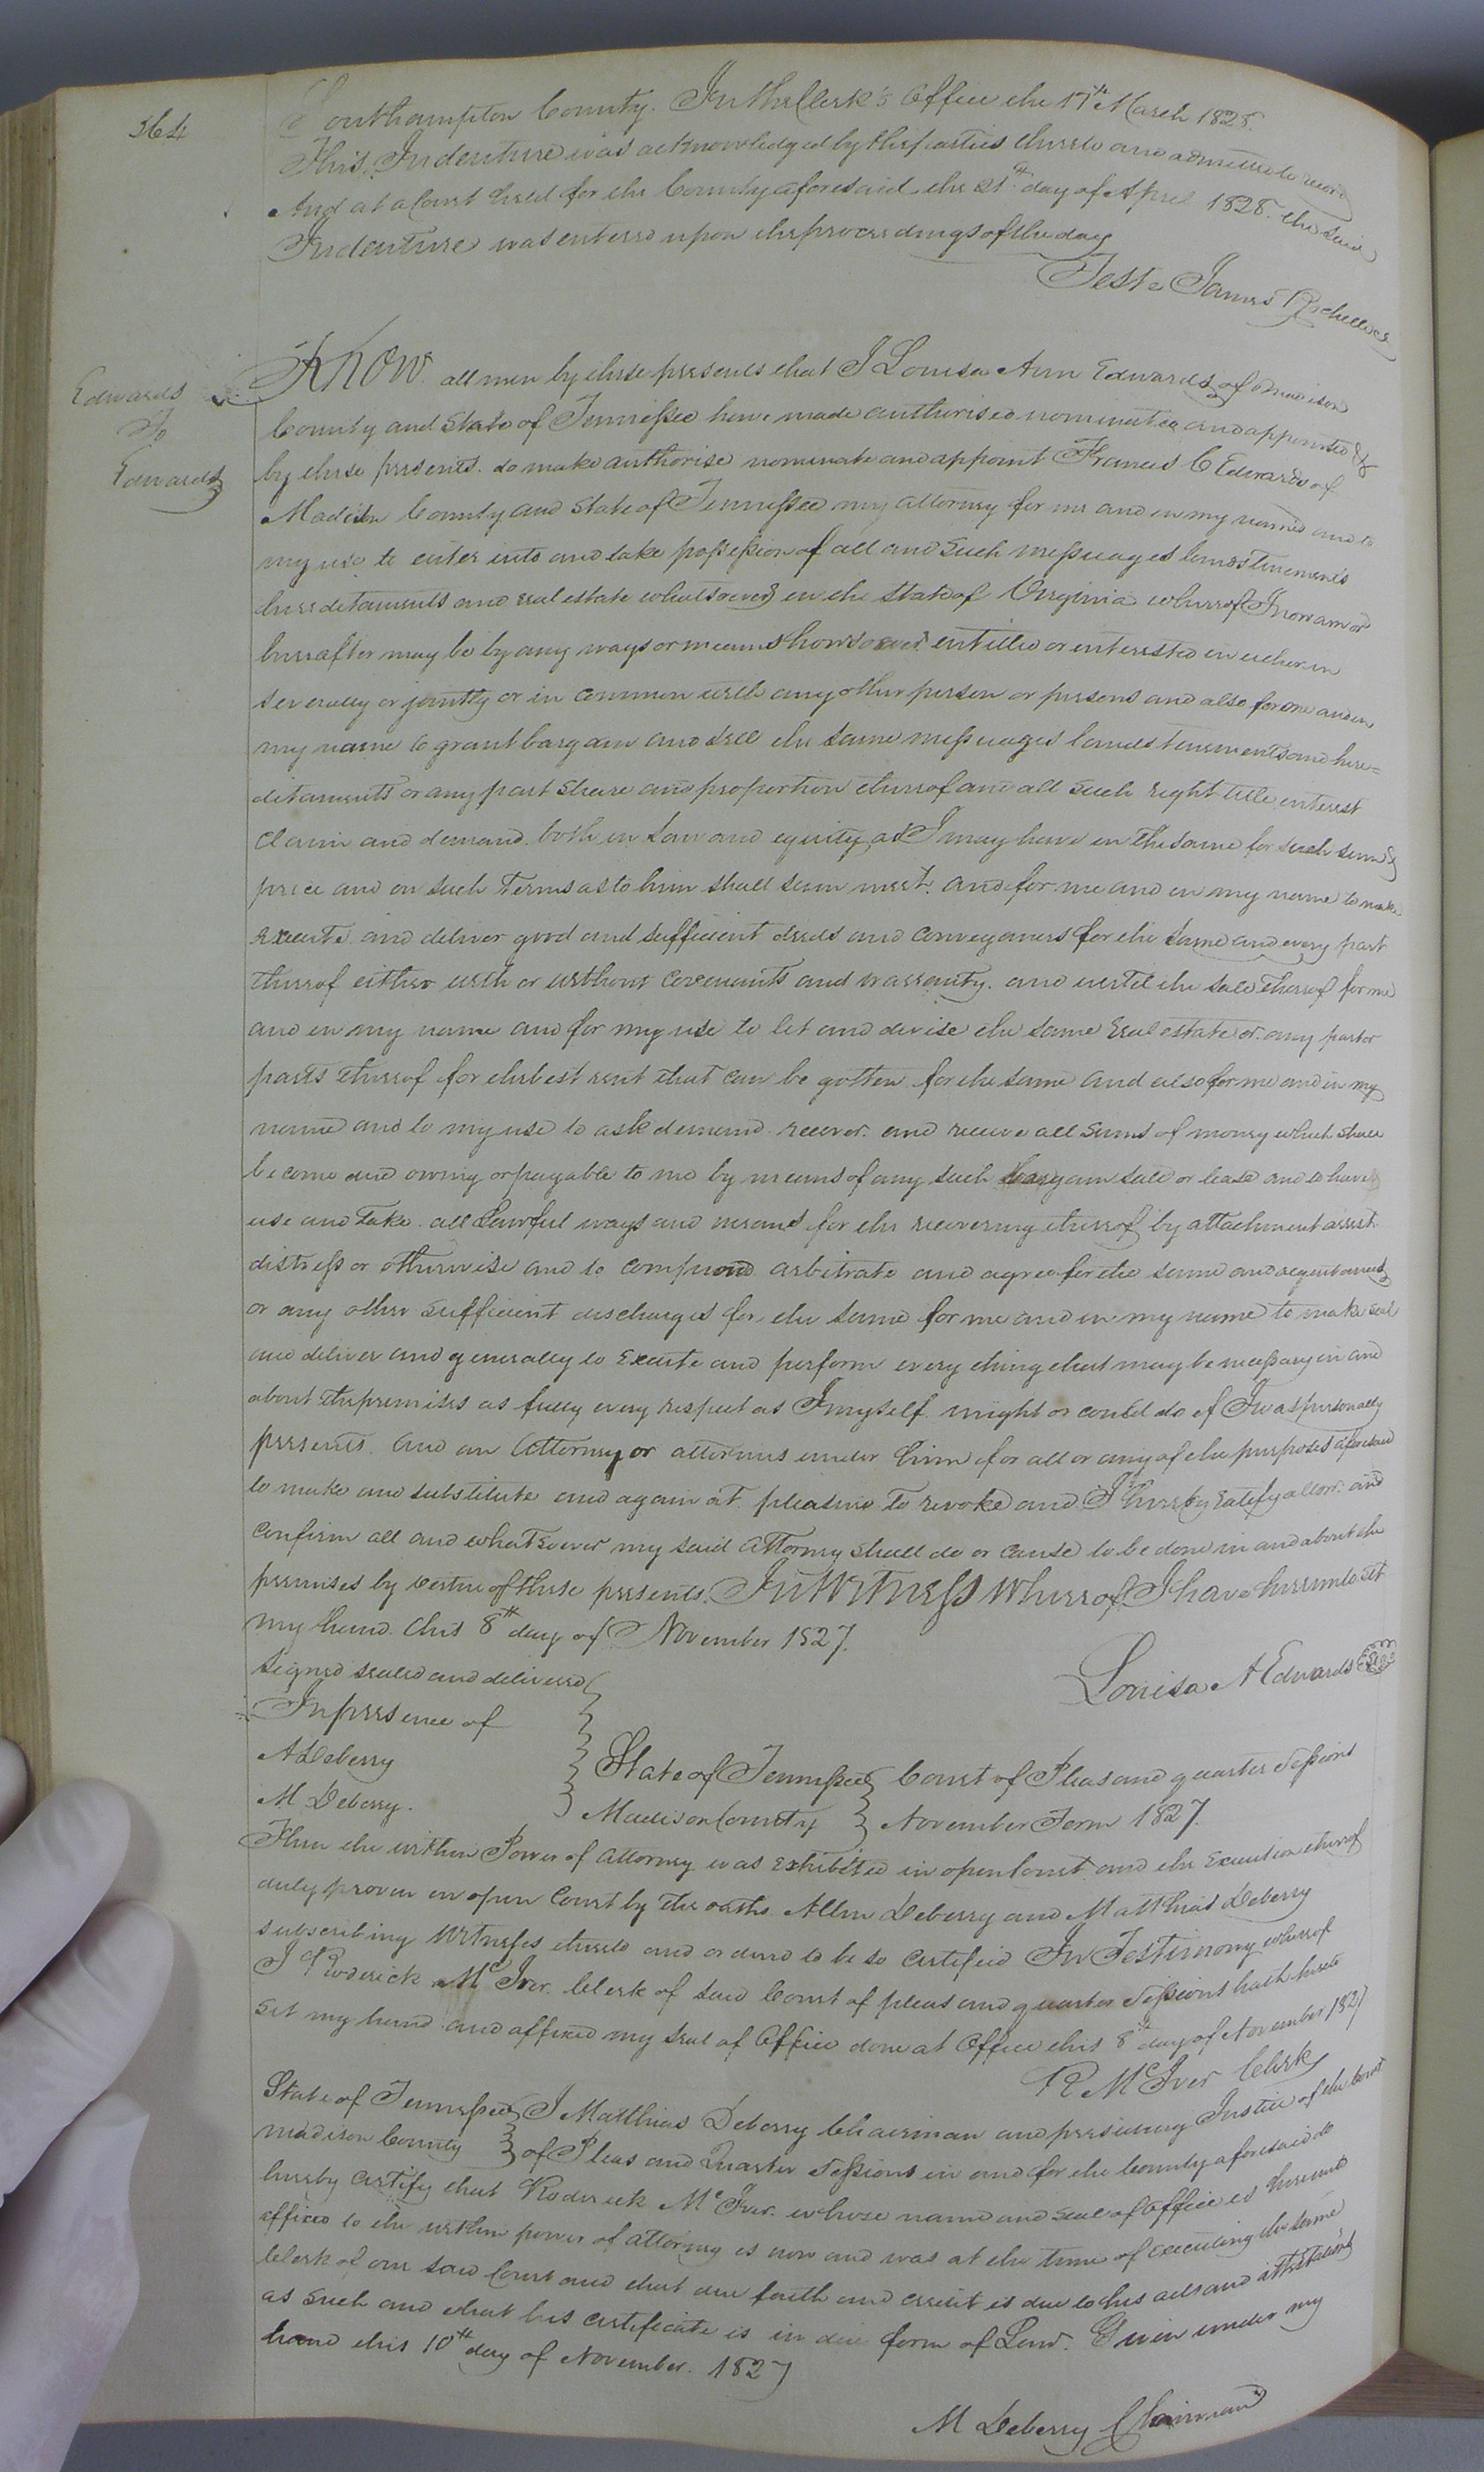 364
Southampton County. In the Clerk's Office the 17th March 1828.
This Indenture was acknowledged by the parties thereto and admitted to record
And at a Court held for the County aforesaid the 21st day of April 1828. the said
Indenture was entered upon the proceedings of the day
Teste James Rochelle
Edwards
To
Edwards
KNOW all men by these presents that I Louisa Ann Edwards of Madison
County and State of Tennessee have made authorised nominated and appointed &
by these presents do make authorise nominate and appoint Francis C Edwards of
Madison County and State of Tennessee my attorney for me and in my name and to
my use to enter into and take possession of all and such messuages lands tenements
hereditaments and real estate whatsoever in the State of Virginia whereof I now am or
hereafter may be by any ways or means howsoever entitled or interested in either in
severally or jointly or in common with any other person or persons and also for me and in
my name to grant bargain and sell the same messuages lands tenements and here=
ditaments or any part share and proportion thereof and all such right title interest
claim and demand both in Law and equity as I may have in the same for such sum &
price and on such Terms as to him shall seem meet. and for me and in my name to make
execute and deliver good and sufficient deeds and conveyances for the same and every part
thereof either with or without covenants and warranty. and until the sale thereof for me
and in my name and for my use to let and devise the same real estate or any part or
parts thereof for the best rent that can be gotten for the same and also for me and in my
name and to my use to ask demand recover and receive all sums of money which shall
become due owing or payable to me by means of any such bargain sale or lease and to have
use and take all Lawful ways and means for the recovering thereof by attachment arrest
distress or otherwise and to compound arbitrate and agree for the same and
or any other sufficient discharges for the same for me and in my name to make seal
and deliver and generally to execute and perform every thing that may be necessary in and
about the premises as fully every respect as I myself might or could do if I was personally
presents. and an Attorney or attornies under him for all or any of the purposes aforesaid
to make and substitute and again at pleasure to revoke and I hereby ratify allow and
confirm all and whatsoever my said attorney shall do or cause to be done in and about the
premises by vertue of these presents. In Witness whereof I have hereunto set
my hand this 8th day of November 1827.
Louisa A Edwards Seal
Signed sealed and delivered
In presence of
A Deberry
M Deberry.
State of Tennessee Court of Pleas and quarter Sessions
Madison County November Term 1827.
Then the within Power of Attorney was exhibited in open Court and the Execution thereof
duly proven in open Court by the oaths Allen Deberry and Matthias Deberry
subscribing Witnesses thereto and ordered to be so certified In Testimony whereof
I Roderick McIver Clerk of said Court of pleas and quarter Sessions hath hereto
set my hand and affixed my seal of Office done at Office this 8th day of November 1827
R McIver Clerk
State of Tennessee I Matthias Deberry Chairman and presiding Justice of the Court
Madison County of Pleas and Quarter Sessions in and for the County aforesaid do
hereby certify that Roderick McIver whose name and seal of Office is hereunto
affixed to the within power of attorney is now and was at the time of executing the same
Clerk of our said Court and that due faith and credit is due to his acts and attestations
as such and that his certificate is in due form of Law. Given under my
hand this 10th day of November. 1827
M Deberry Chairman